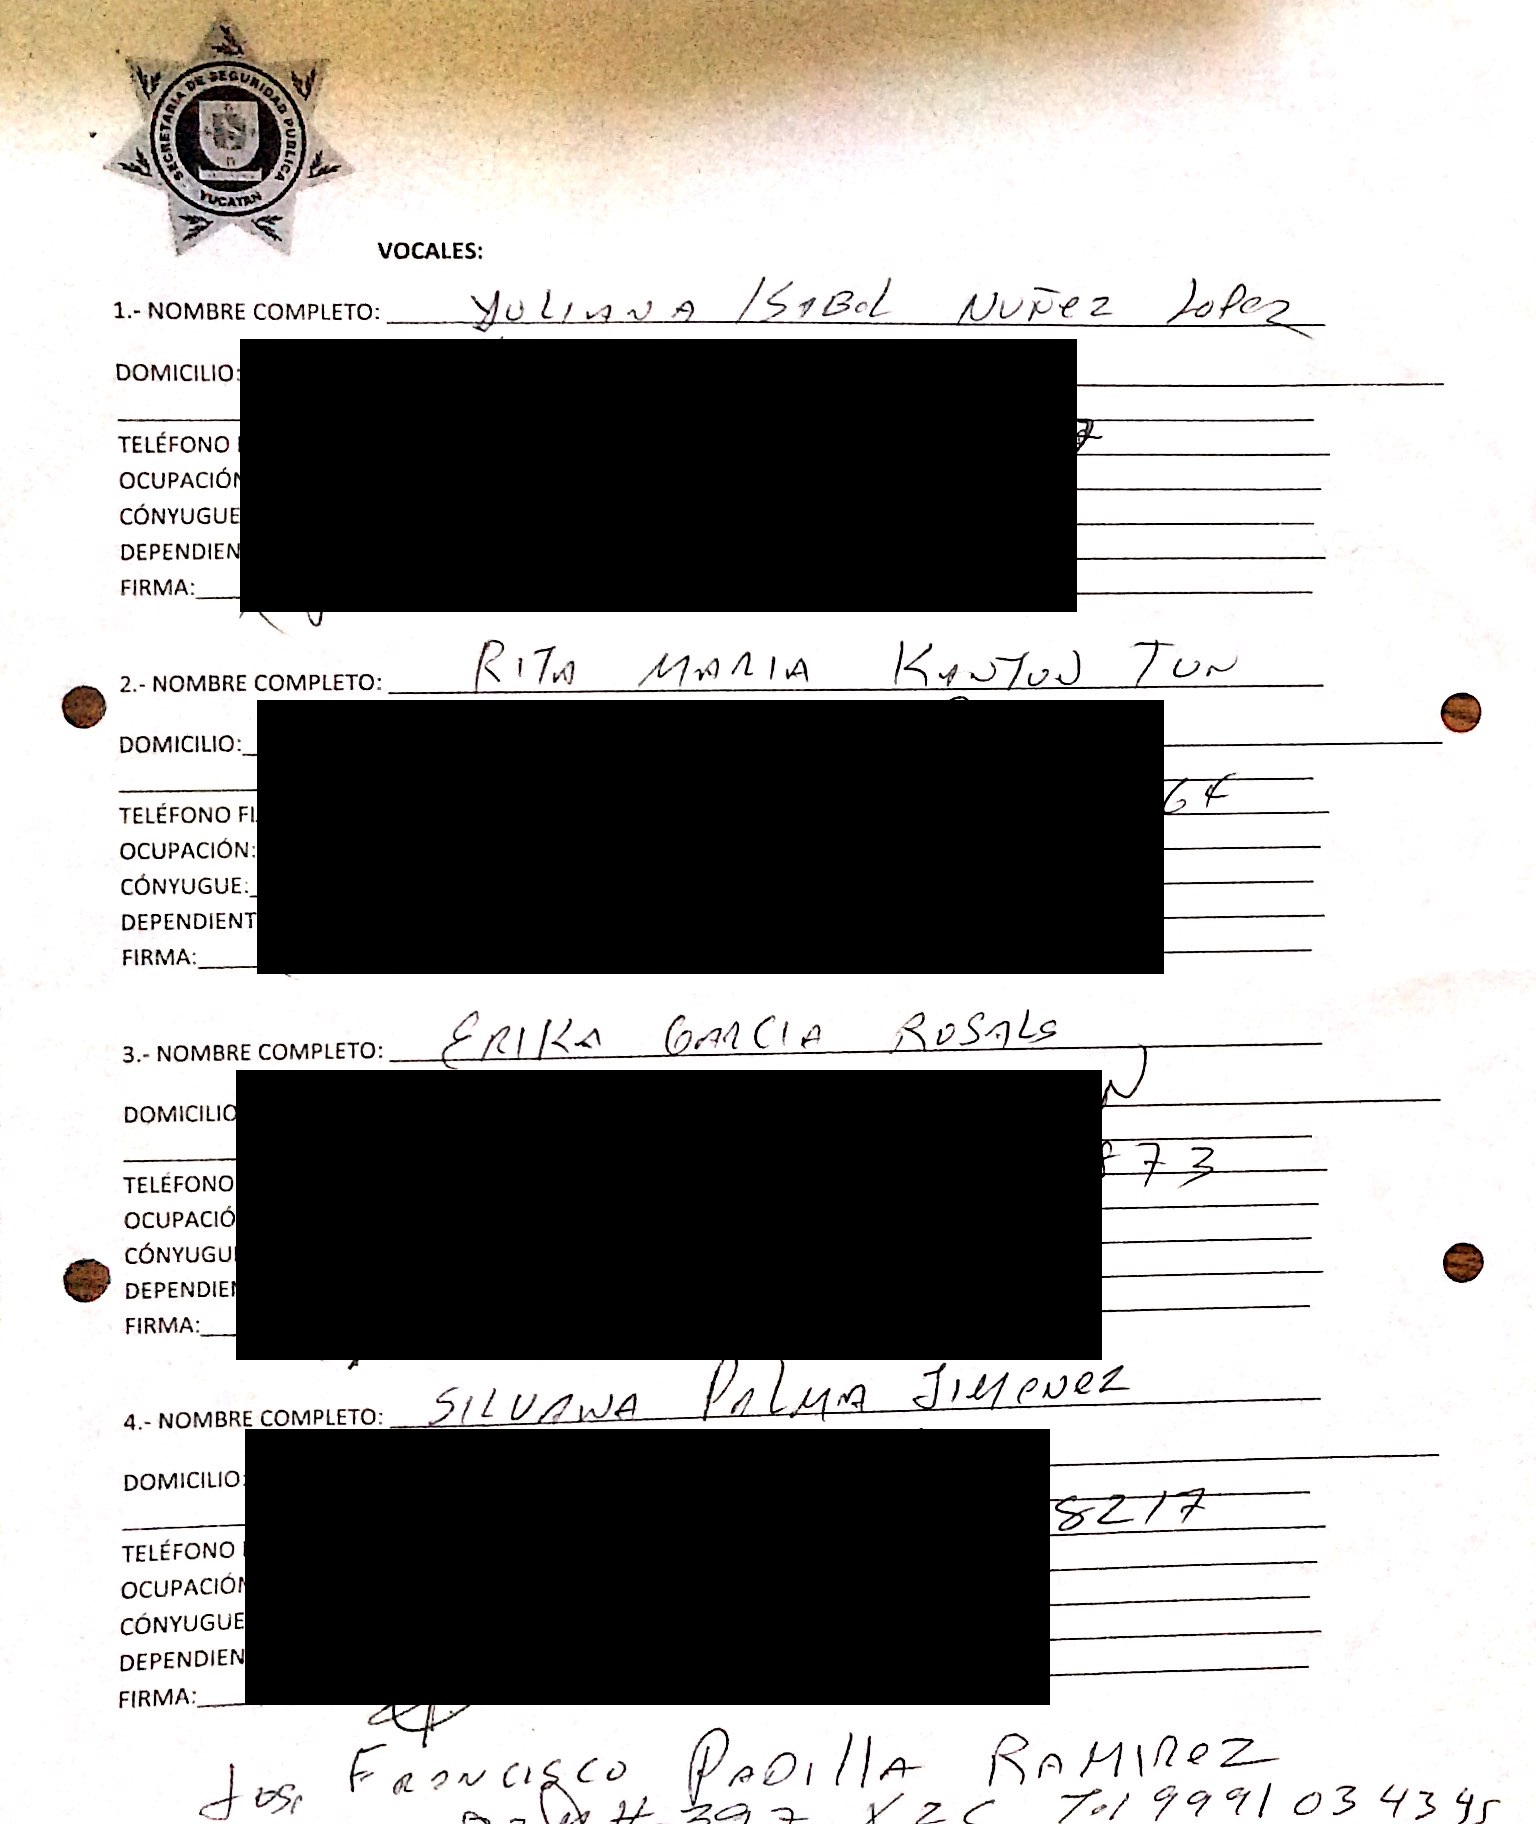 SECRETARIA DE SEGURIDAD PUBLICA
YUCATAN
VOCALES:
1.- NOMBRE COMPLETO: YULIANA ISABEL NUÑEZ LOPEZ
DOMICILIO:
TELÉFONO
OCUPACIÓN
CÓNYUGUE
DEPENDIEN
FIRMA:
2.- NOMBRE COMPLETO: RITA MARIA KANTUN TUN
DOMICILIO:
TELÉFONO FI
64
OCUPACIÓN:
CÓNYUGUE:
DEPENDIENT
FIRMA:
3.- NOMBRE COMPLETO: ERIKA GARCIA ROSALS
DOMICILIO
TELÉFONO
73
OCUPACIÓ
CÓNYUGU
DEPENDIEN
FIRMA:
4.- NOMBRE COMPLETO: SILVANA PALMA JIMENEZ
DOMICILIO:
8217
TELÉFONO
OCUPACIÓN
CÓNYUGUE
DEPENDIEN
FIRMA:
Jose FRANCISCO PADILLA RAMIREZ
397 X 26 Tel 9991034345